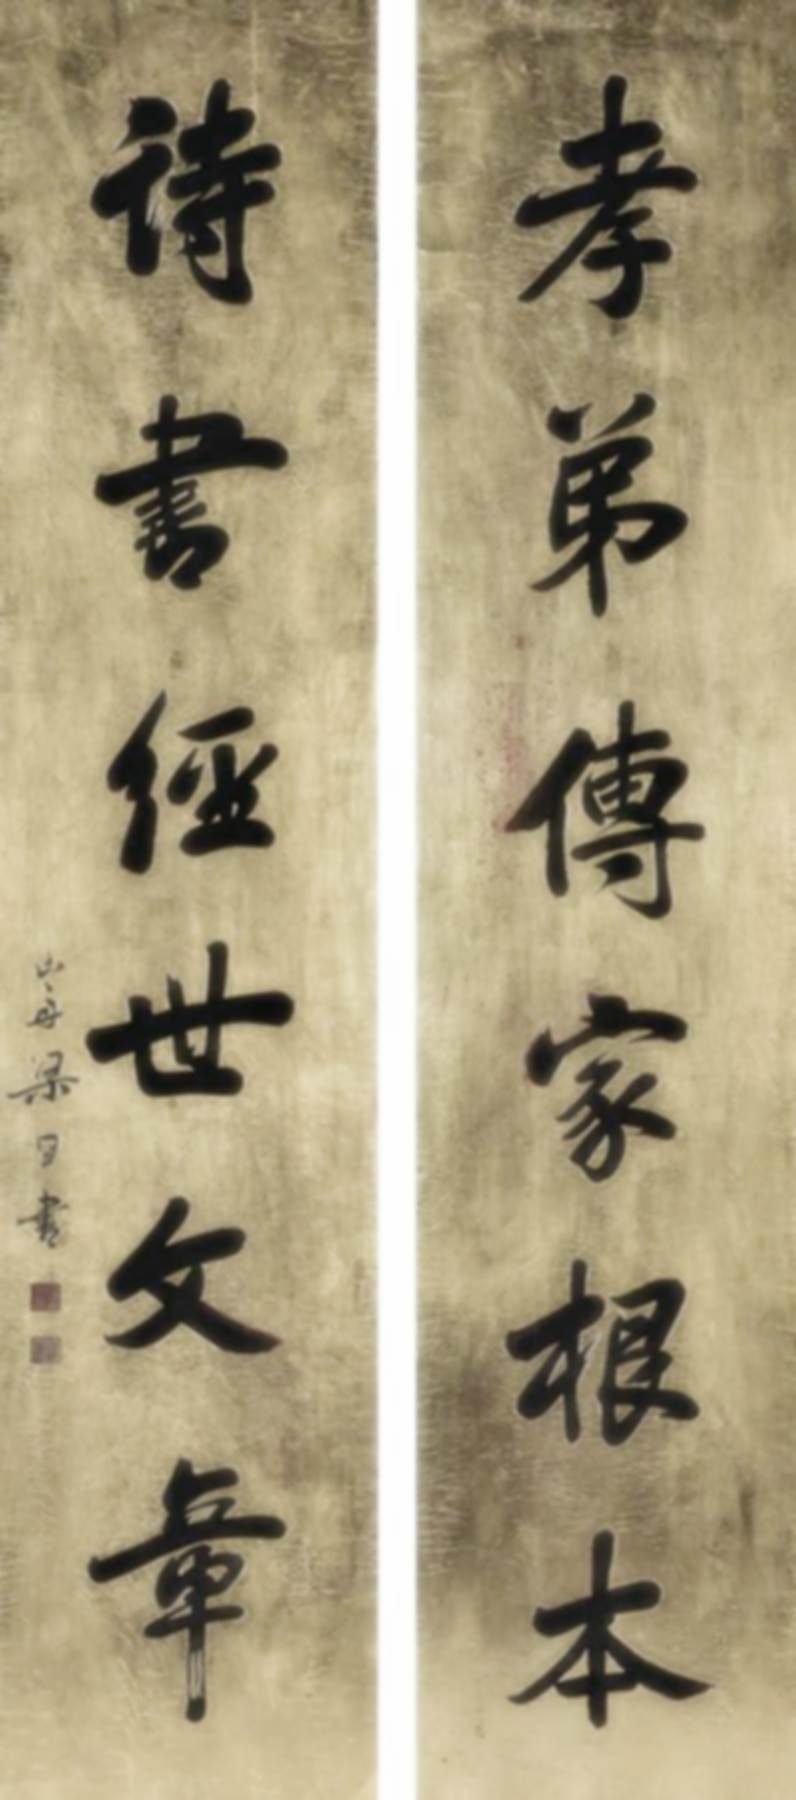 孝弟傳家根本
詩書經世文章
山舟梁同書